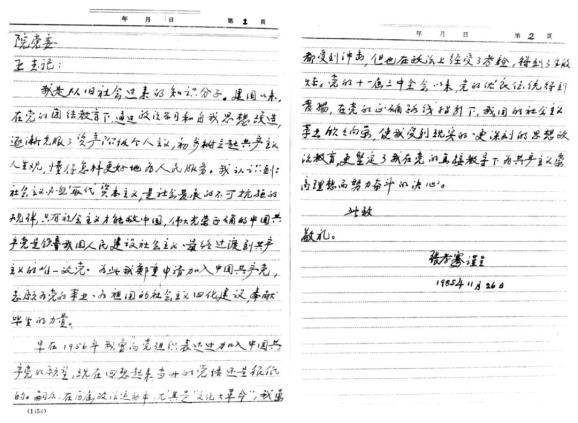 年 月 日 第 1 页
院党委
王书记:
我是从旧社会过来的知识分子。建国以来,
在党的团结教育下,通过政治学习和自我思想改造,
逐渐克服了资产阶级个人主义,初步树立起共产主义
人生观,懂得怎样更好地为人民服务。我认识到:
社会主义必然取代资本主义,是社会发展的不可抗拒的
规律,只有社会主义才能救中国,伟大光荣正确的中国共
产党是领导我国人民建设社会主义、最终过渡到共产
主义的唯一政党。为此我郑重申请加入中国共产党,
志愿为党的事业、为祖国的社会主义四化建设,奉献
毕生的力量。
早在1956年我曾向党组织表达过加入中国共
产党的愿望,现在回想起来当时的觉悟还是很低
的。嗣后,在历届政治运动中,尤其是“文化大革命”,我虽
(1450)
年 月 日 第 2 页
都受到冲击,但也在政治上经受了考验,得到了
党的十一届三中全会以来,党的优良传统得到
发扬,在党的正确路线指引下,我国的社会主义
事业欣欣向荣,使我受到现实的更深刻的思想政
治教育,更坚定了我在党的直接教导下为共产主义崇
高理想而努力奋斗的决心。
此致
敬礼。
张孝骞谨呈
1985年11月26日